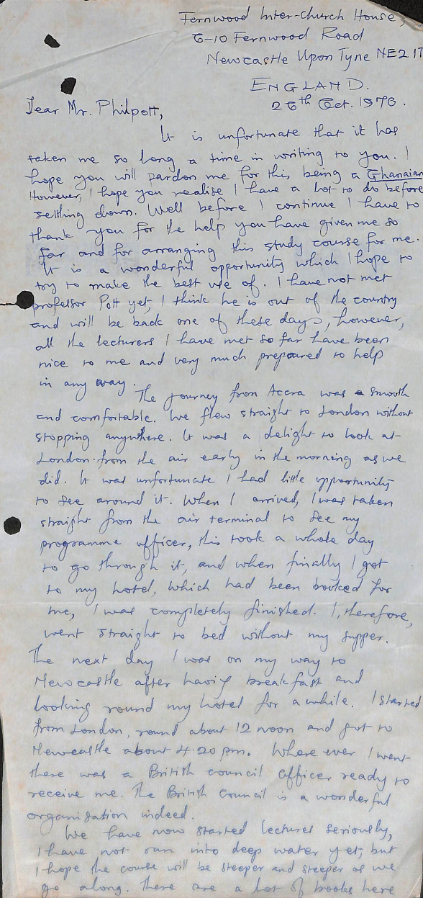 Fernwood Inter-church House,
6-10 Fernwood Road
Newcastle Upon Tyne NE2 1T
ENGLAND.
26th Oct. 1976.
Dear Mr. Philpott,
It is unfortunate that it has
taken me so long a time in writing to you. I
hope you will pardon me for this, being a Ghanaian
However, I hope you realise I have a lot to do before
settling down. Well before I continue I have to
thank you for the help you have given me so
far and for arranging this study course for me.
It is a wonderful opportunity which I hope to
try to make the best use of. I have not met
professor Pott yet, I think he is out of the country
and will be back one of these days, however,
all the lecturers I have met so far have been
nice to me and very much prepared to help
in any way.
The journey from Accra was a smooth
and comfortable. We flew straight to London without
stopping anywhere. It was a delight to look at
London from the air early in the morning as we
did. It was unfortunate I had little opportunity
to see around it. When I arrived, I was taken
straight from the air terminal to see my
programme officer, this took a whole day
to go through it, and when finally I got
to my hotel, which had been booked for
me, I was completely finished. I, therefore,
went straight to bed without my supper.
The next day I was on my way to
Newcastle after having breakfast and
looking round my hotel for a while. I started
from London, round about 12 noon and got to
Newcastle about 4.20pm. Where ever I went
there was a British council officer ready to
receive me. The British Council is a wonderful
organisation indeed.
We have now started lectures seriously,
I have not run into deep water yet, but
I hope the course will be steeper and steeper as we
go along. There are a lot of books here